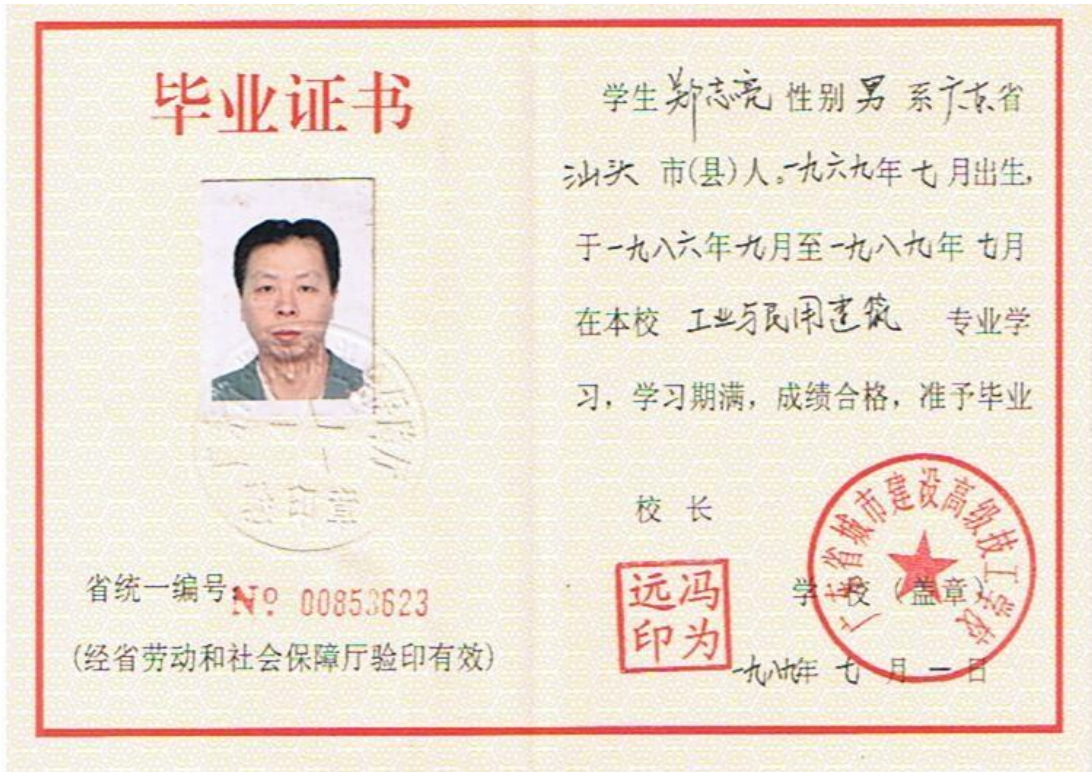 毕业证书
省统一编号:
№ 00853623
(经省劳动和社会保障厅验印有效)
学生郑志亮性别男系广东省
汕头市(县)人。一九六九年七月出生,
于一九八六年九月至一九八九年七月
在本校 工业与民用建筑 专业学
习，学习期满，成绩合格，准予毕业
校长
冯为远印
学校(盖章)
广东省城市建设高级技工学校
一九八九年七月一日